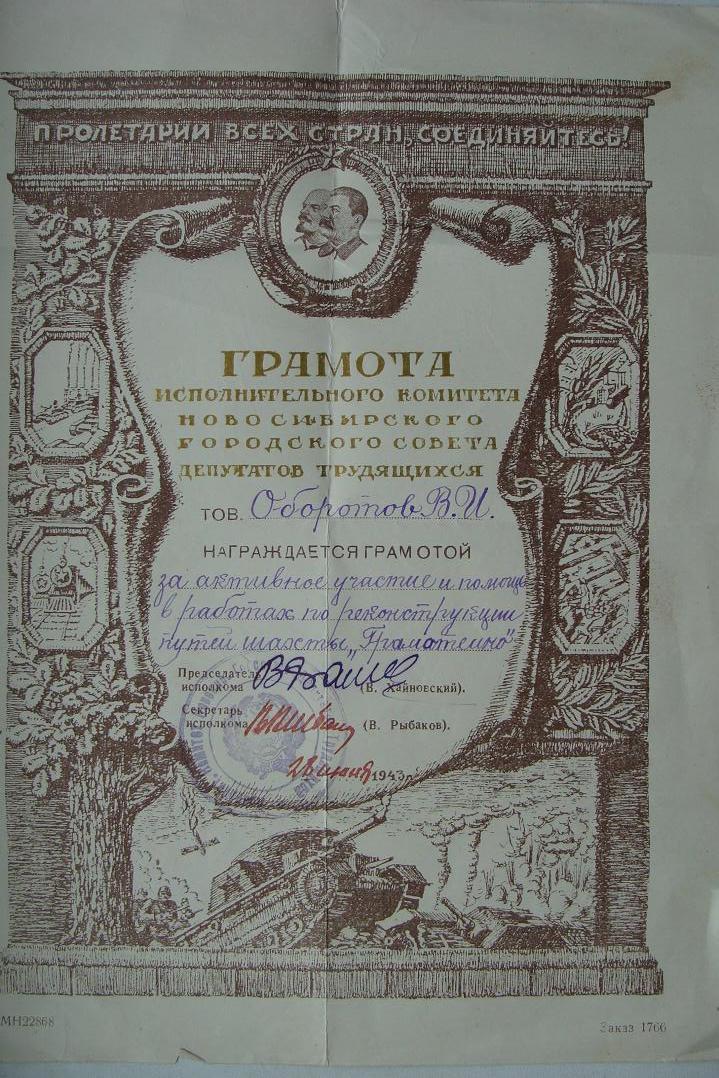 ПРОЛЕТАРИИ ВСЕХ СТРАН, СОЕДИНЯЙТЕСЬ!
ГРАМОТА
ИСПОЛНИТЕЛЬНОГО КОМИТЕТА
НОВОСИБИРСКОГО
ГОРОДСКОГО СОВЕТА
ДЕПУТАТОВ ТРУДЯЩИХСЯ
ТОВ. Оборотов В. И.
НАГРАЖДАЕТСЯ ГРАМОТОЙ
за активное участие и помощь
в работах по реконструкции
путей шахты „Грамотеино"
Председатель
исполкома (В. Хайновский).
Секретарь
исполкома (В. Рыбаков).
28 1943 г.
МН22868
Заказ 1766